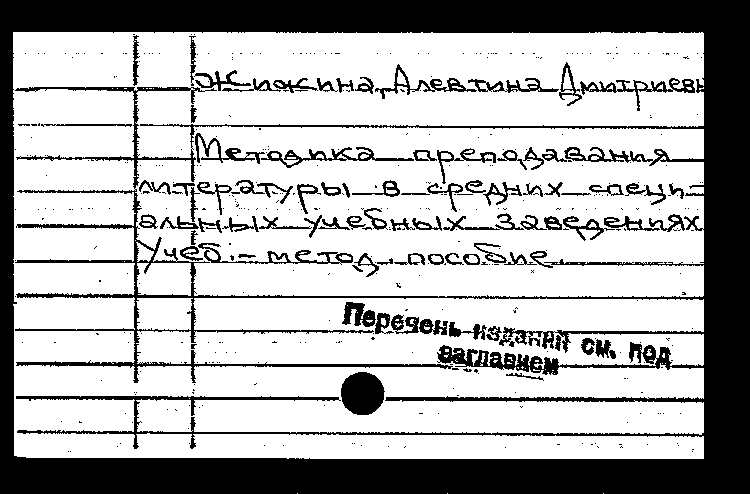 Жижина, Алевтина Дмитриевн
Методика преподавания
литературы в средних специ-
альных учебных заведениях
Учеб.- метод. пособие.
Перечень изданий см. под
заглавием